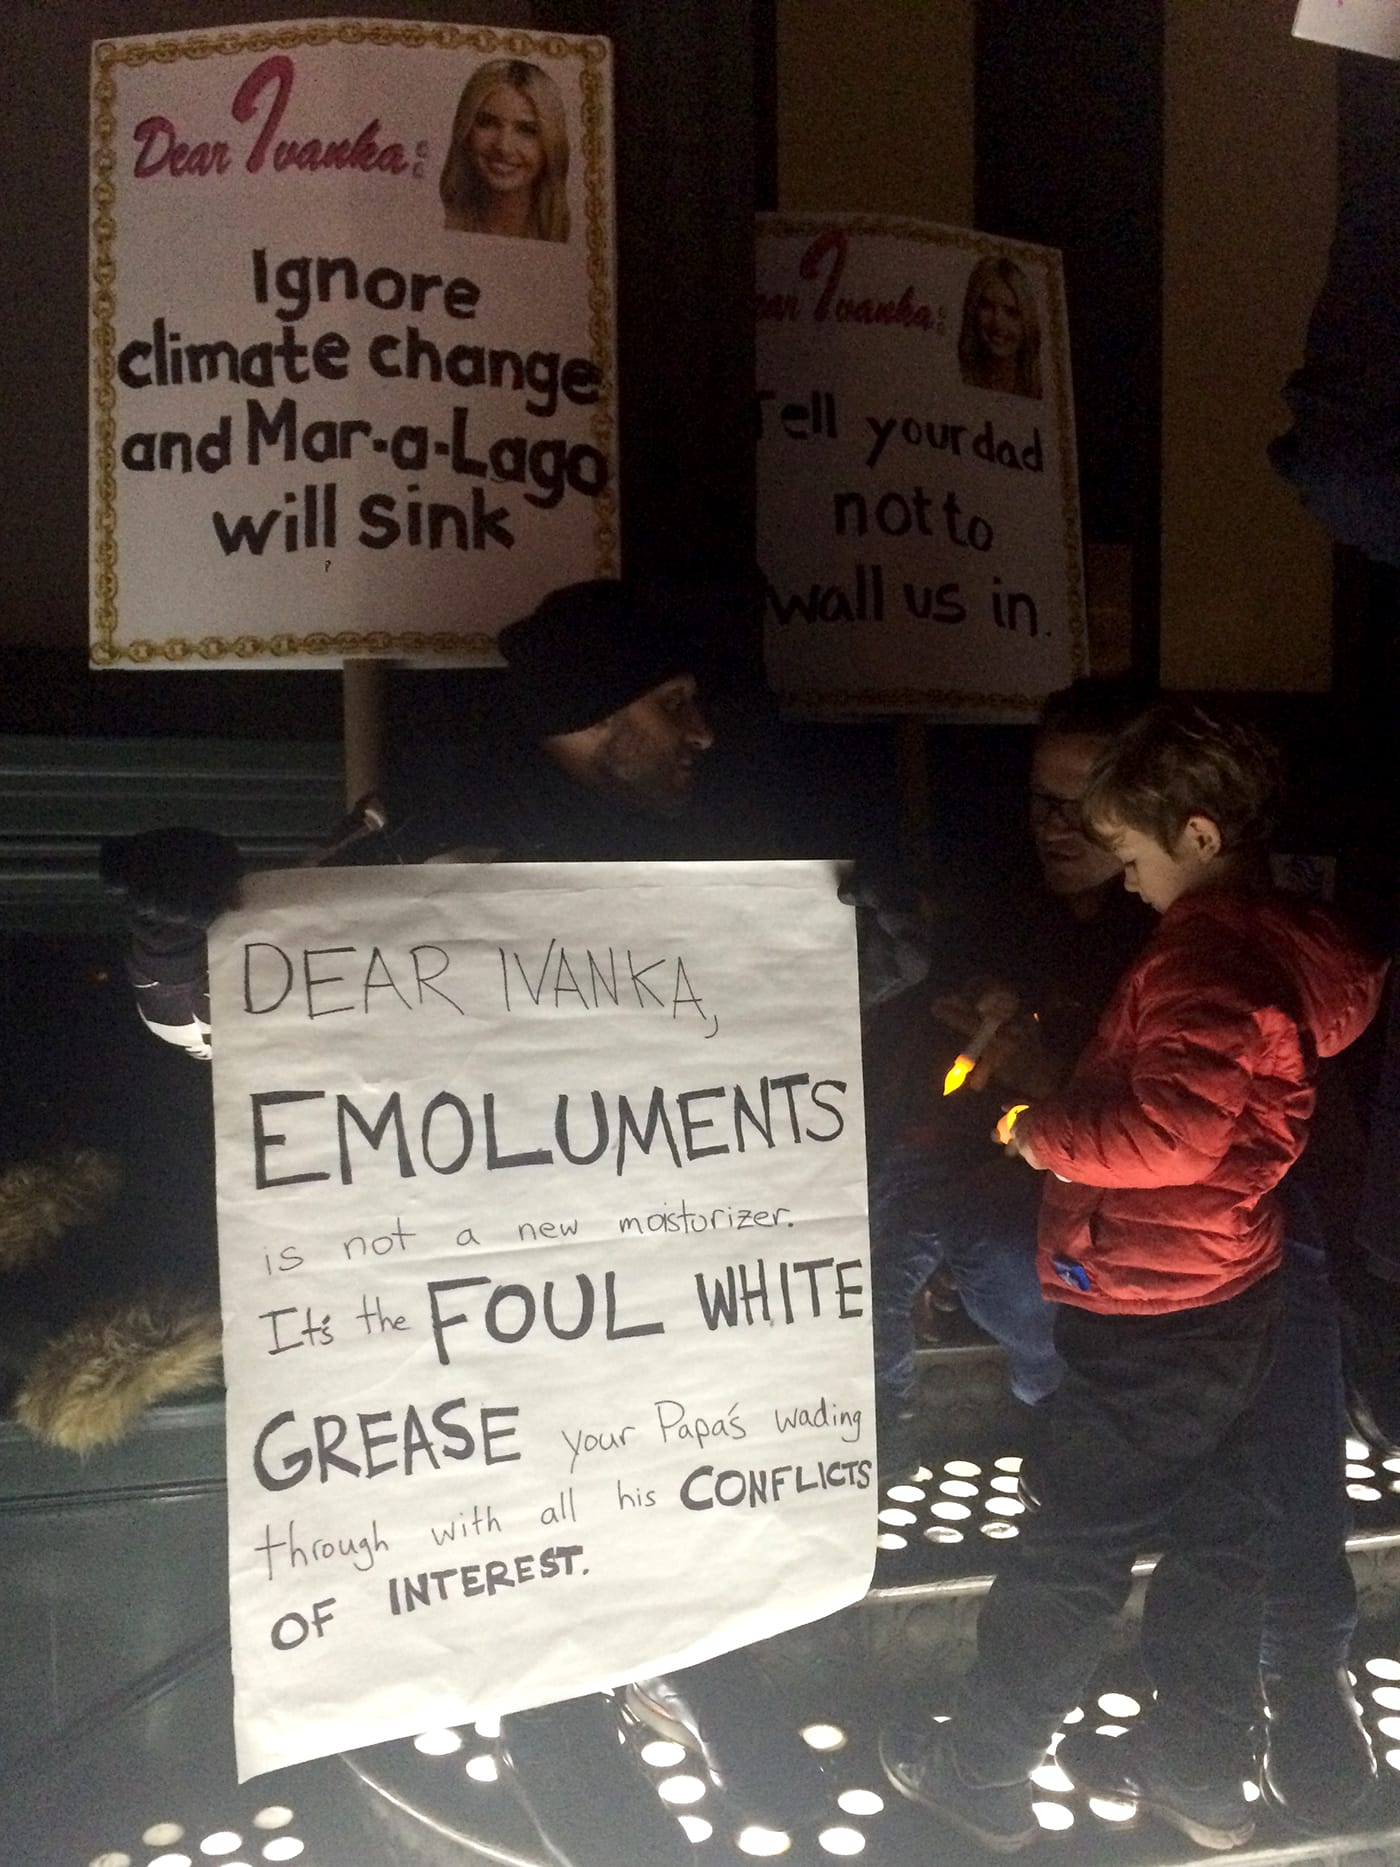 Dear Ivanka:
Ignore
climate change
and Mar-a-Lago
will sink
Ivanka:
Tell your dad
not to
wall us in.
DEAR IVANKA,
EMOLUMENTS
is not a new moisturizer.
It's the FOUL WHITE
GREASE your Papa's wading
through with all his CONFLICTS
OF INTEREST.